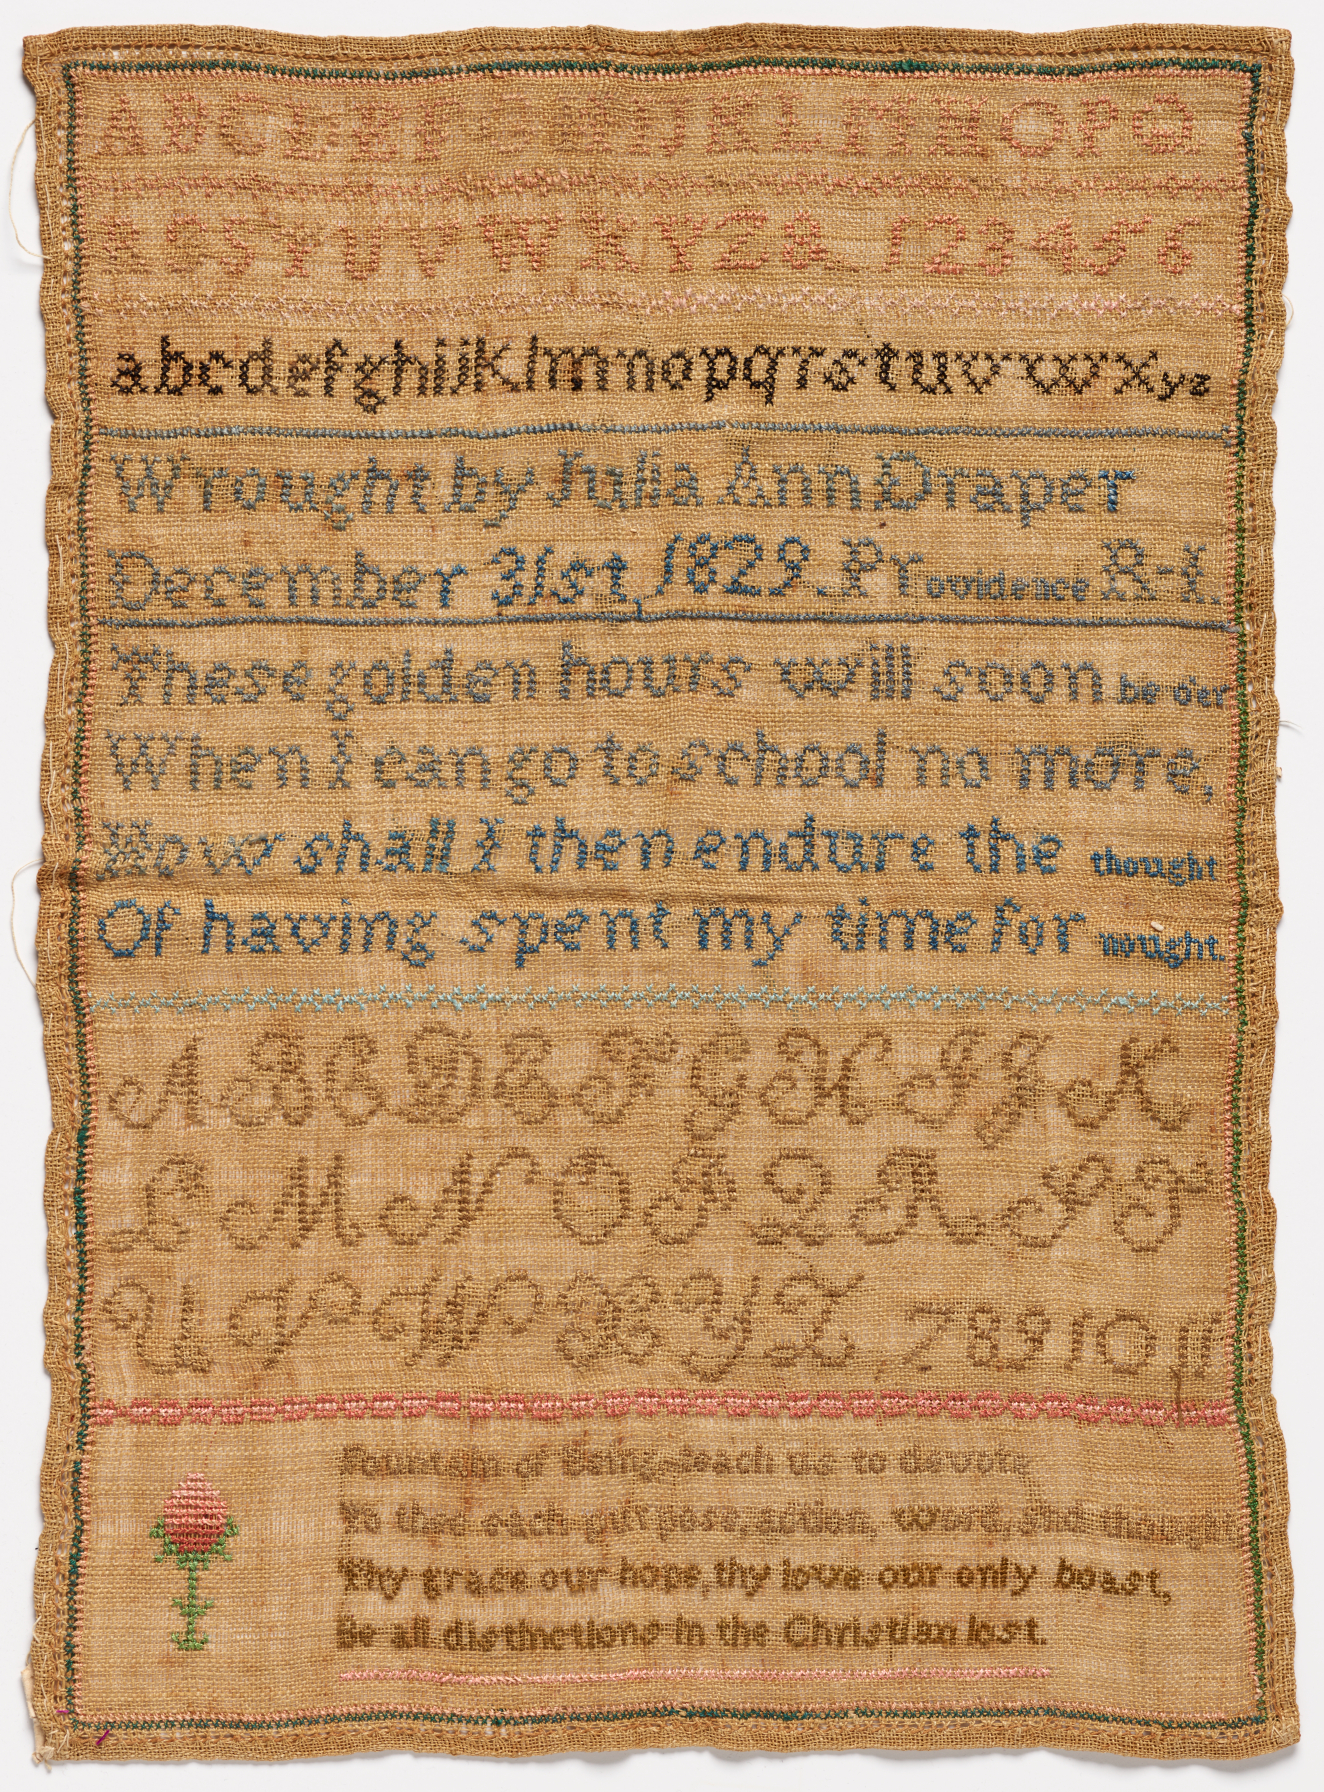 ABCDEF GHIJKLMNOPQ
RSTUVWXYZ& 123456
abcdefghijklmnopqrstuvwxyz
Wrought by Julia Ann Draper
December 31st, 1829. Providence R-I.
These golden hours will soon be o'er
When I can go to school no more,
How shall I then endure the thought
Of having spent my time for nought.
ABCDEFGHIJK
LMNOPQRST
UVWXYZ 7 8 9 10 11
Fountain of Being teach us to devote
To thee each purpose, action, word, and thought
Thy grace our hope, thy love our only boast,
Be all distinctions in the Christian lost.